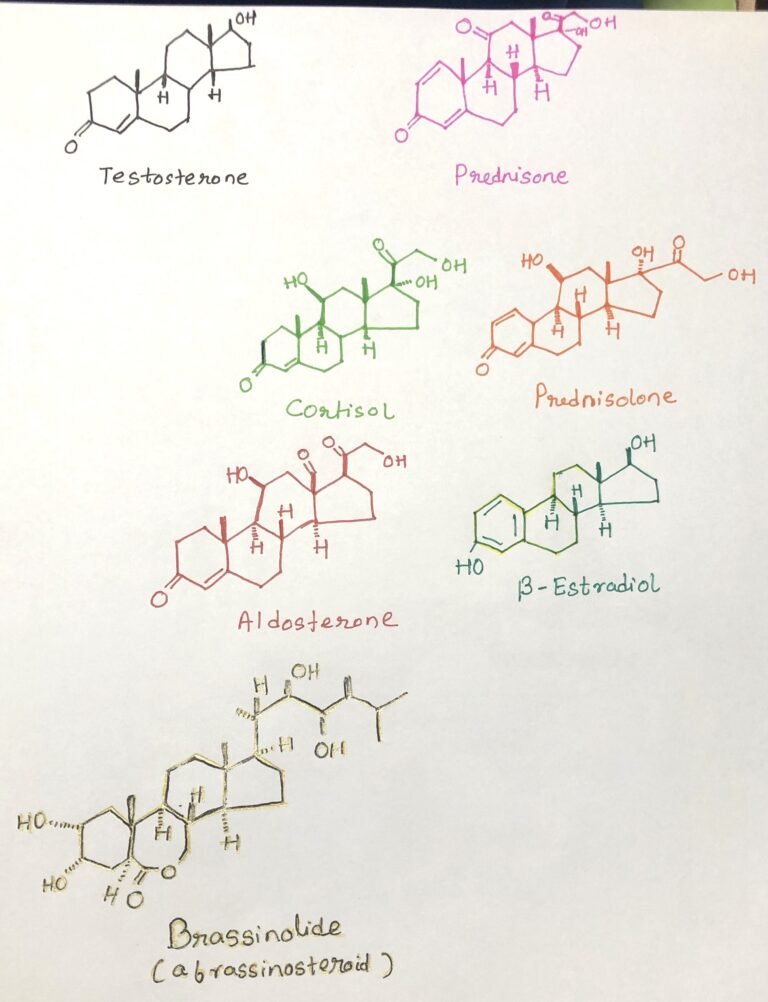 OH
H
H
O
Testosterone
O
O
OH
OH
H
H
H
O
Prednisone
O
OH
OH
HO
H
H
O
Cortisol
HO
OH
O
OH
H
H
H
O
Prednisolone
HO
O
O
OH
H
H
H
O
Aldosterone
OH
H
H
H
HO
β-Estradiol
H
OH
OH
H
H
H
H
HO
HO
H
O
O
Brassinolide
(a brassinosteroid)